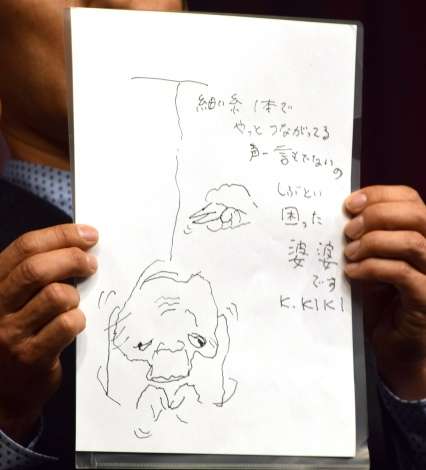 細い糸1本で
やっとつながってる
声一言もでないの
しぶとい
困った
婆婆
です
K.KIKI